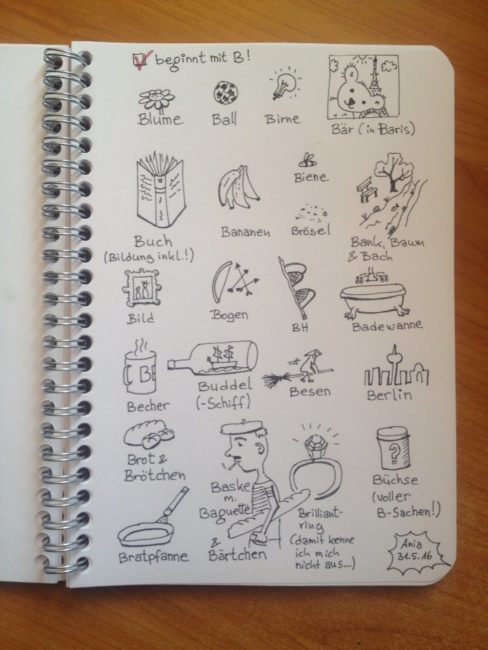 beginnt mit B!
Blume
Ball
Birne
Bär (in Baris)
Buch
(Bildung inkl.!)
Bananen
Biene
Brösel
Bank, Baum
& Bach
Bild
Bogen
BH
Badewanne
B
Becher
Buddel
(-Schiff)
Besen
Berlin
Brot &
Brötchen
Baske
m.
Baguette
& Bärtchen
Brilliant-
ring
(damit kenne
ich mich
nicht aus...)
?
Büchse
(voller
B-Sachen!)
Bratpfanne
Ania
31.5.16